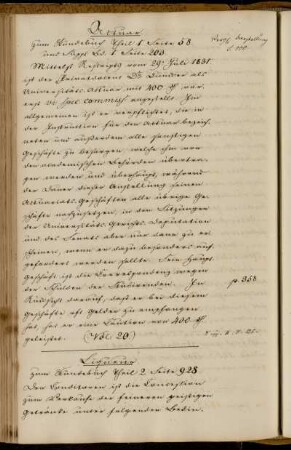 Actuar
zum Stundebuch Theil 1 Seite 58
und Suppl. Bd. 1. Seite 203
Mittelst Rescripts vom 29 Juli 1831
ist der Privatdocent Dr.
Universitäts Actuar mit 400 
angestellt. Im
allgemeinen ist er verpflichtet, die in
der Instruction für den Actuar bezeich-
neten und außerdem alle sonstigen
Geschäfte zu besorgen welche ihm von
der academischen Behörde übertra-
gen werden und überhaupt während
der Dauer dieser Anstellung seinen
Actuariats Geschäften alle übrige Ge-
schäfte nachzusetzen, in den Sitzungen
der Universitäts Gerichts Deputation
und des Senats aber nur dann zu er-
scheinen, wenn er dazu besonders auf-
gefordert werden sollte. Sein Haupt
Geschäft ist die Correspondenz wegen
der Schulden der Studirenden. In
Rücksicht darauf, daß er bei diesem
Geschäfte oft Gelder zu empfangen
hat, hat er eine Caution von 400
geleistet. (Vol. 20)
p. 358
Liqueur
zum Stundebuch Theil 2. Seite 928
Den Conditoren ist die Concession
zum Verkaufe der feineren geistigen
Getränke unter folgenden Bedin-